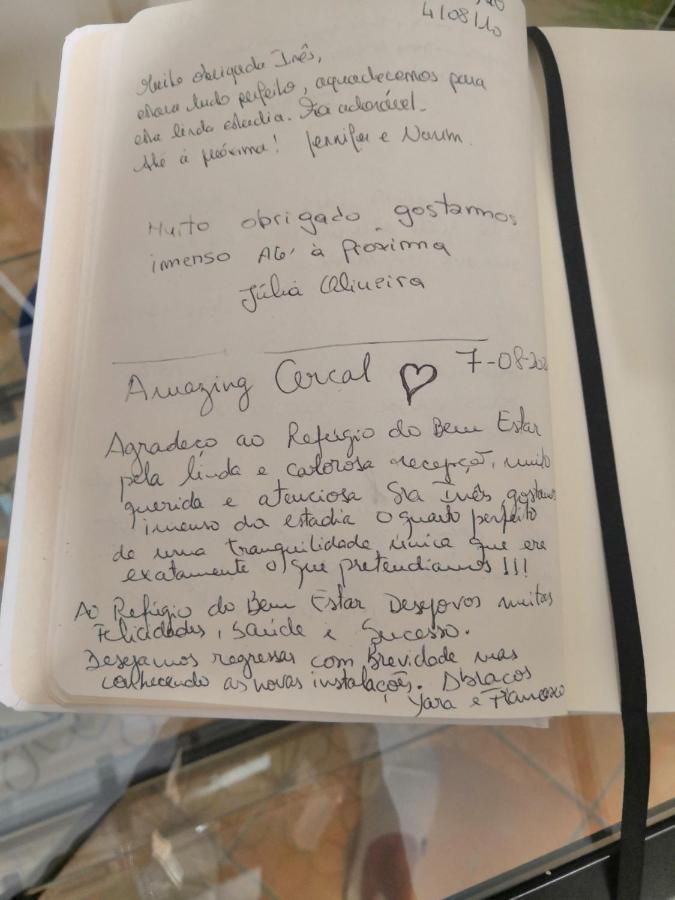 4/08/20
Muito obrigada Inês,
estava tudo perfeito, aquadecemos para
esta linda estadia. Foi adorável.
Até à próxima! Jennifer e Narim.
Muito obrigado gostamos
imenso Até à Próxima
Júlia Oliveira
Amazing Cercal ♡ 7-08-202
Agradeço ao Refúgio do Bem Estar
pela linda e calorosa recepção, muito
querida e atenciosa Sra Inês gostamos
imenso da estadia o quarto perfeito
de uma tranquilidade única que era
exatamente o que pretendiamos !!!
Ao Refúgio do Bem Estar Desejovos muitas
Felicidades, Saúde e Sucesso.
Desejamos regressar com Brevidade mas
conhecendo as novas instalações. Abraços
Yara e Francisco